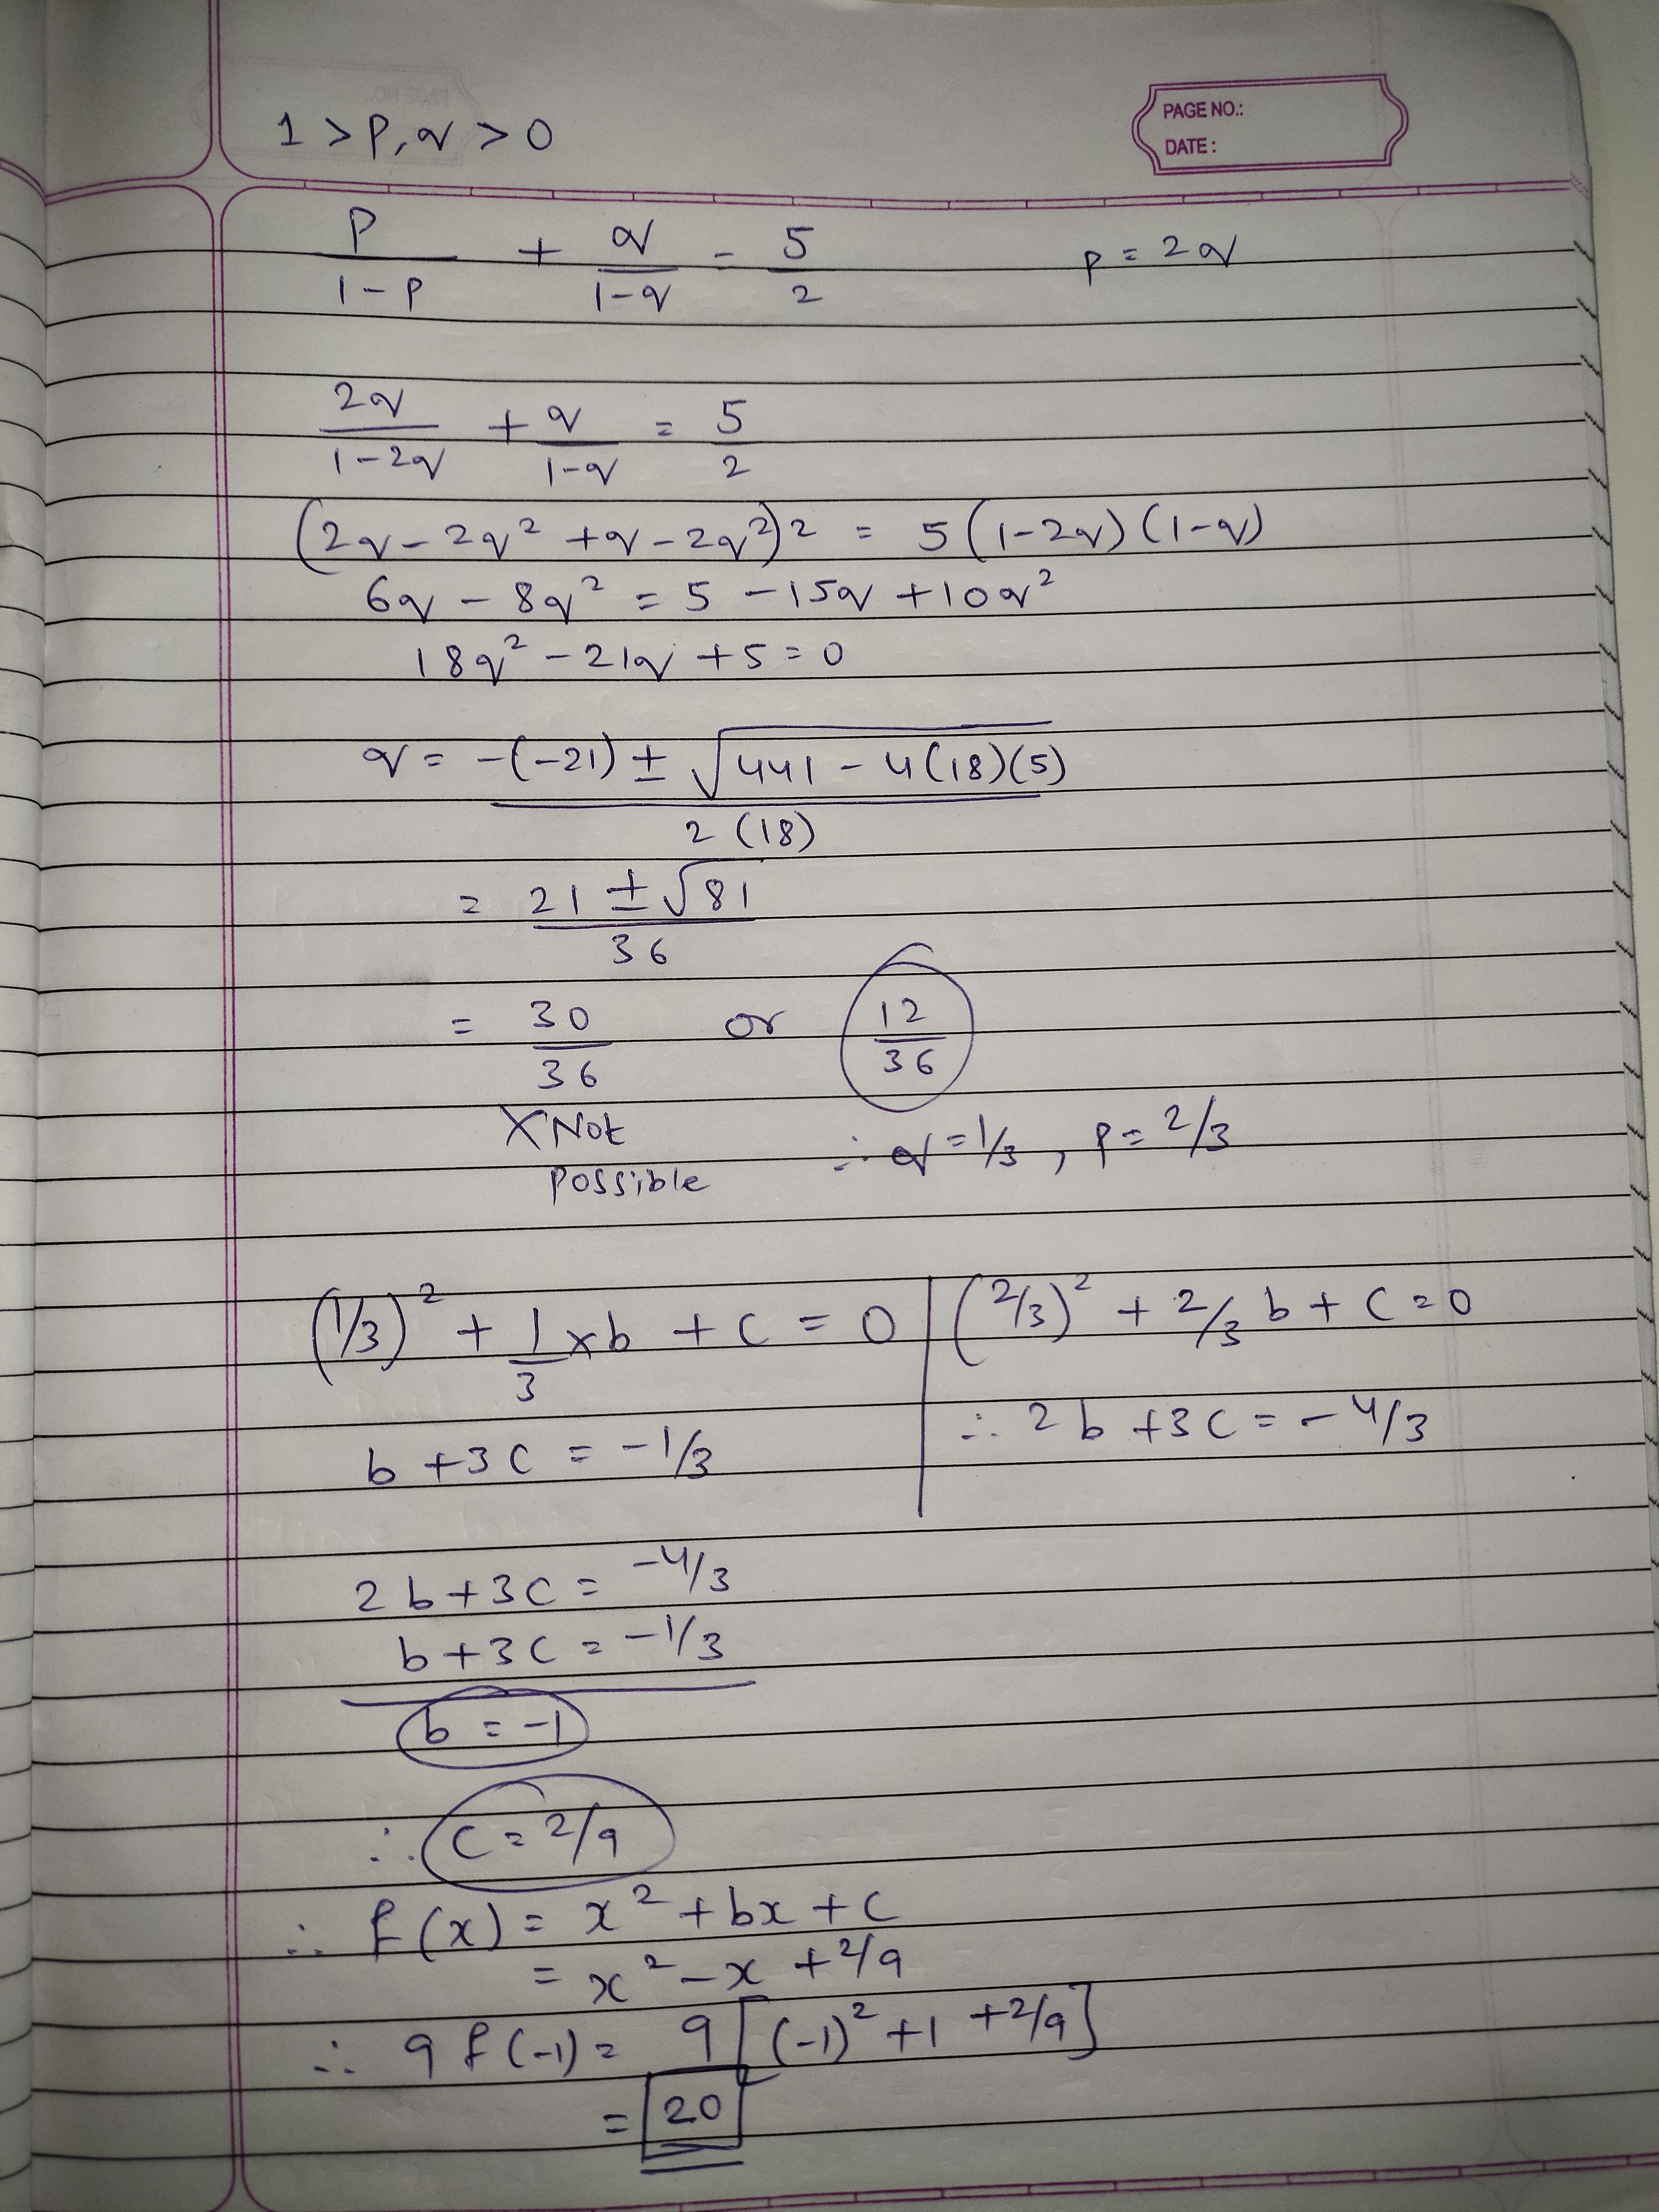 PAGE NO.:
DATE :
1 > p, q > 0
p/(1-p) + q/(1-q) = 5/2    p = 2q
2q/(1-2q) + q/(1-q) = 5/2
(2q - 2q² + q - 2q²)2 = 5(1-2q)(1-q)
6q - 8q² = 5 - 15q + 10q²
18q² - 21q + 5 = 0
q = (-(-21) ± √(441 - 4(18)(5)))/(2(18))
= (21 ± √81)/36
= 30/36 or 12/36
X Not possible    ∴ q = 1/3, p = 2/3
(1/3)² + 1/3 × b + c = 0 | (2/3)² + 2/3 b + c = 0
b + 3c = -1/3 | ∴ 2b + 3c = -4/3
2b + 3c = -4/3
b + 3c = -1/3
b = -1
∴ c = 2/9
∴ f(x) = x² + bx + c
= x² - x + 2/9
∴ 9 f(-1) = 9[(-1)² + 1 + 2/9]
= 20